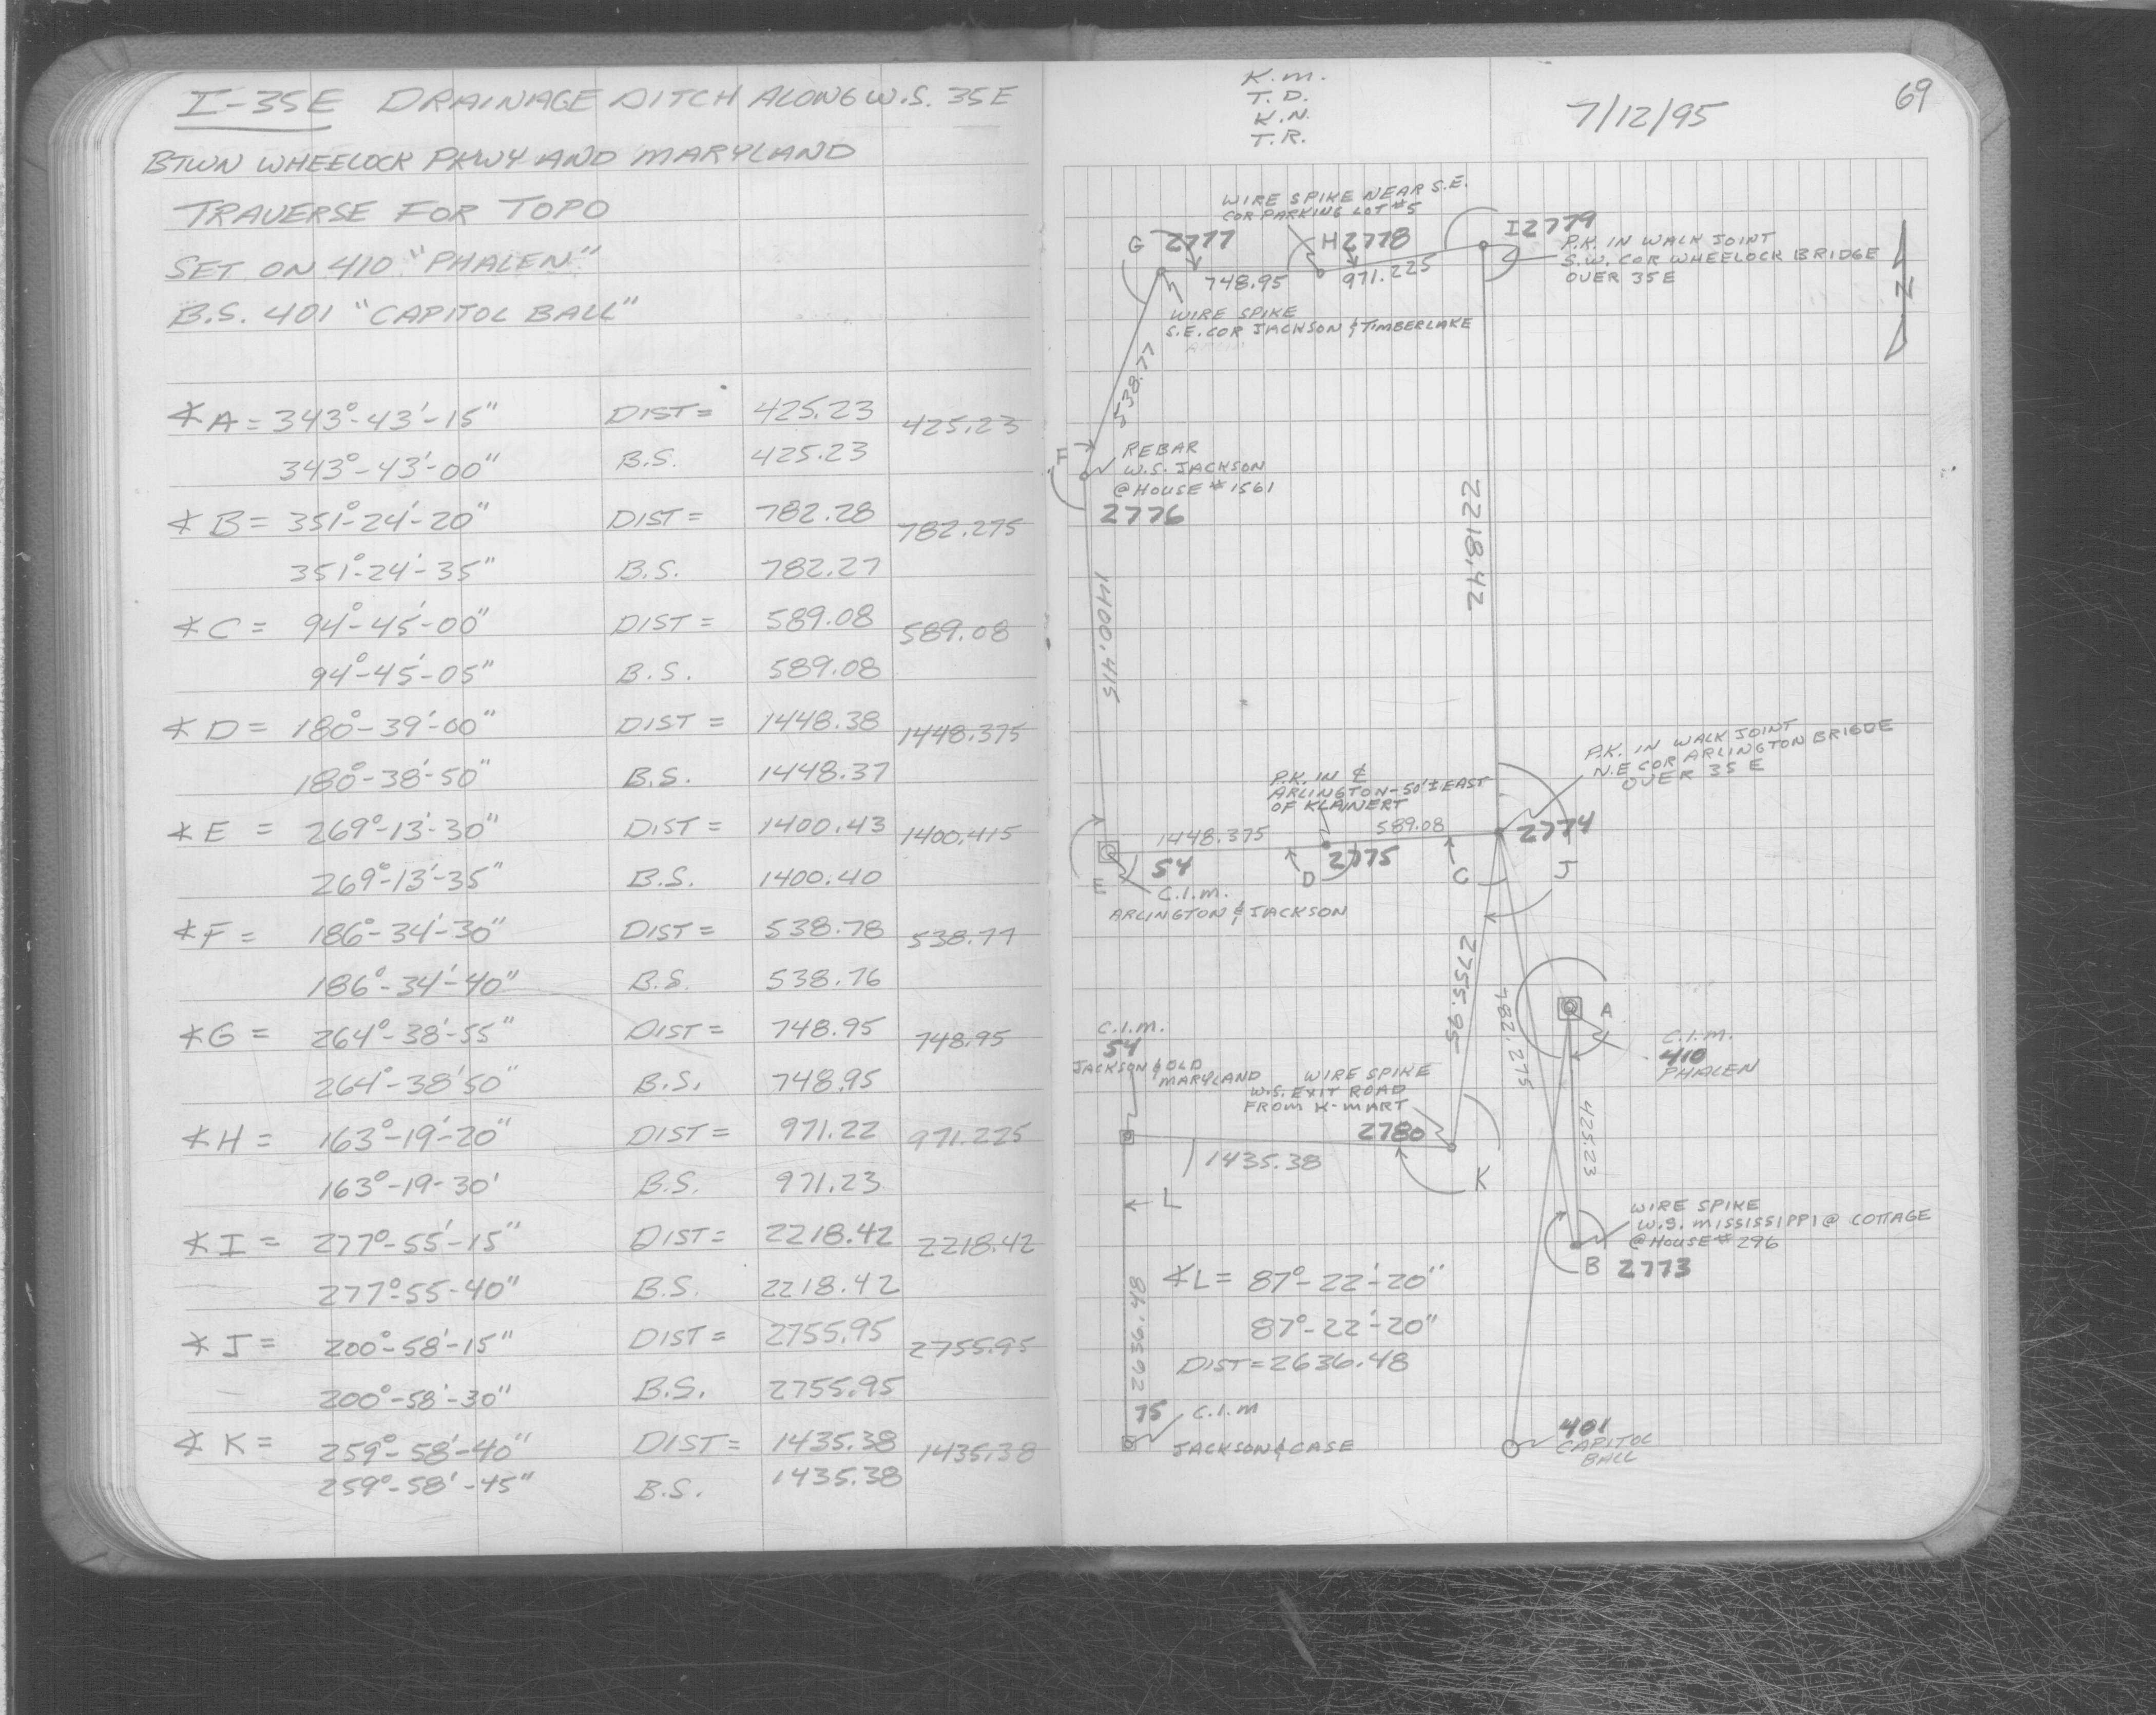 I-35E DRAINAGE DITCH ALONG W.S. 35E
BTWN WHEELOCK PKWY AND MARYLAND
TRAVERSE FOR TOPO
SET ON 410 "PHALEN"
B.S. 401 "CAPITOL BALL"
∡A = 343°-43'-15" DIST = 425.23 425.23
343°-43'-00" B.S. 425.23
∡B = 351°-24'-20" DIST = 782.28 782.275
351°-24'-35" B.S. 782.27
∡C = 94°-45'-00" DIST = 589.08 589.08
94°-45'-05" B.S. 589.08
∡D = 180°-39'-00" DIST = 1448.38 1448.375
180°-38'-50" B.S. 1448.37
∡E = 269°-13'-30" DIST = 1400.43 1400.415
269°-13'-35" B.S. 1400.40
∡F = 186°-34'-30" DIST = 538.78 538.77
186°-34'-40" B.S. 538.76
∡G = 264°-38'-55" DIST = 748.95 748.95
264°-38'50" B.S. 748.95
∡H = 163°-19'-20" DIST = 971.22 971.225
163°-19-30' B.S. 971.23
∡I = 277°-55'-15" DIST = 2218.42 2218.42
277°-55-40" B.S. 2218.42
∡J = 200°-58'-15" DIST = 2755.95 2755.95
200°-58'-30" B.S. 2755.95
∡K = 259°-58'-40" DIST = 1435.38 1435.38
259°-58'-45" B.S. 1435.38
K.M.
T.D.
K.N.
T.R.
7/12/95
69
WIRE SPIKE NEAR S.E.
COR PARKING LOT #5
G 2777
H 2778
I 2779
P.K. IN WALK JOINT
S.W. COR WHEELOCK BRIDGE
OVER 35E
N
748.95
971.225
WIRE SPIKE
S.E. COR JACKSON & TIMBERLAKE
538.77
F
REBAR
W.S. JACKSON
@ HOUSE #1561
2776
2218.42
1400.415
P.K. IN WALK JOINT
N.E COR ARLINGTON BRIGDE
OVER 35 E
P.K. IN ℄
ARLINGTON-50'± EAST
OF KLAINERT
1448.375
589.08
2774
54
2775
E
D
C
J
C.I.M.
ARLINGTON & JACKSON
2755.95
782.275
A
C.I.M.
410
PHALEN
C.I.M.
54
JACKSON & OLD
MARYLAND
WIRE SPIKE
W.S. EXIT ROAD
FROM K-MART
2780
1435.38
K
L
425.23
WIRE SPIKE
W.S. MISSISSIPPI @ COTTAGE
@ HOUSE #296
B 2773
∡L = 87°-22'-20"
87°-22'-20"
DIST = 2636.48
2636.48
75 C.I.M
JACKSON & CASE
401
CAPITOL
BALL